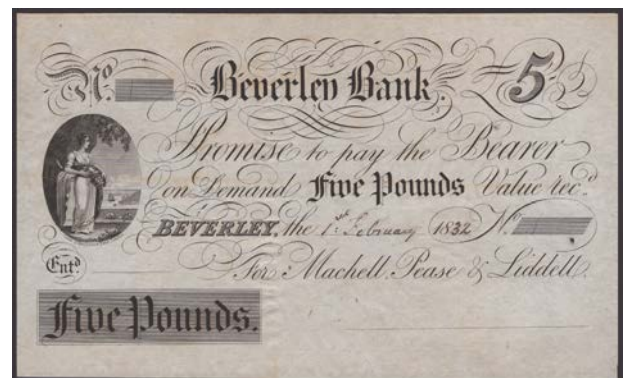 No. Beverley Bank. 5
Promise to pay the Bearer
on Demand Five Pounds Value rec.d
BEVERLEY, the 1st February 1832 No.
Ent.d
For Machell, Pease & Liddell.
Five Pounds.